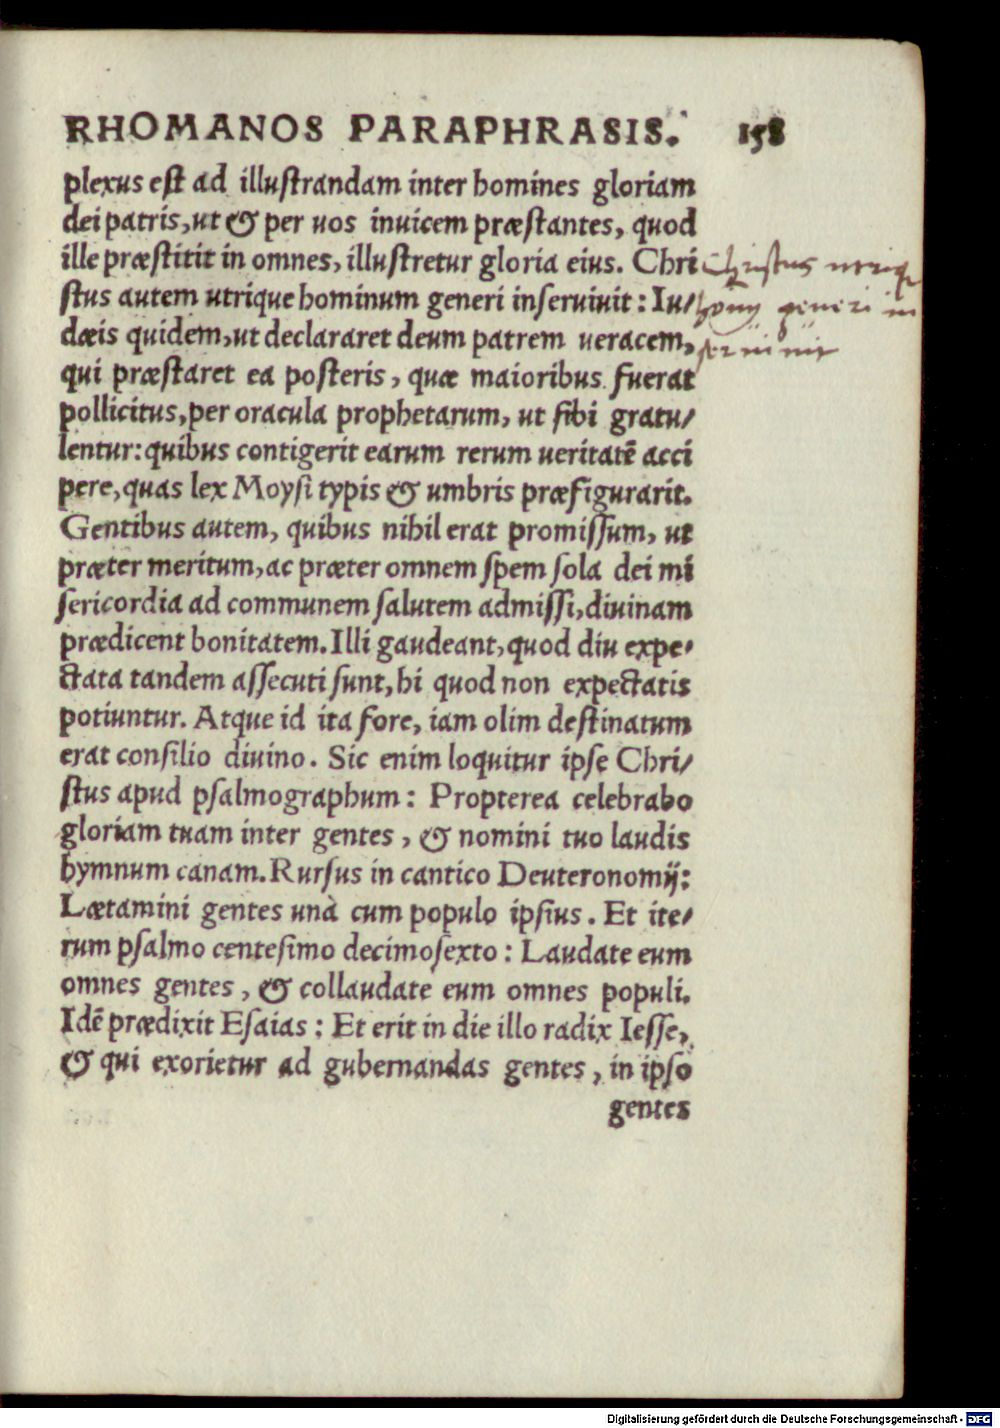 RHOMANOS PARAPHRASIS. 158
plexus est ad illustrandam inter homines gloriam
dei patris, ut & per uos inuicem præstantes, quod
ille præstitit in omnes, illustretur gloria eius. Chri
stus autem utrique hominum generi inseruiuit: Iu/
dæis quidem, ut declararet deum patrem ueracem,
qui præstaret ea posteris, quæ maioribus fuerat
pollicitus, per oracula prophetarum, ut sibi gratu/
lentur: quibus contigerit earum rerum ueritatē acci
pere, quas lex Moysi typis & umbris præfigurarit.
Gentibus autem, quibus nihil erat promissum, ut
præter meritum, ac præter omnem spem sola dei mi
sericordia ad communem salutem admissi, diuinam
prædicent bonitatem. Illi gaudeant, quod diu expe/
ctata tandem assecuti sunt, hi quod non expectatis
potiuntur. Atque id ita fore, iam olim destinatum
erat consilio diuino. Sic enim loquitur ipse Chri/
stus apud psalmographum: Propterea celebrabo
gloriam tuam inter gentes, & nomini tuo laudis
hymnum canam. Rursus in cantico Deuteronomij:
Lætamini gentes unà cum populo ipsius. Et ite/
rum psalmo centesimo decimosexto: Laudate eum
omnes gentes, & collaudate eum omnes populi.
Idē prædixit Esaias: Et erit in die illo radix Iesse,
& qui exorietur ad gubernandas gentes, in ipso
gentes
Christus utriq
hom̄ generi in
seruiuit
Digitalisierung gefördert durch die Deutsche Forschungsgemeinschaft - DFG